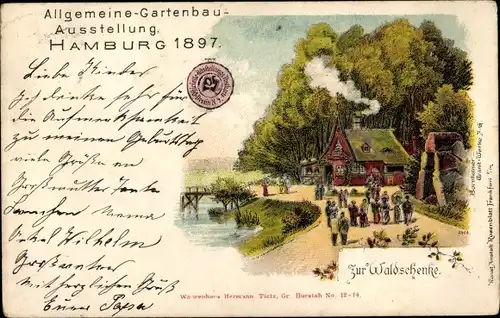 Allgemeine-Gartenbau-
Ausstellung.
HAMBURG 1897.
Liebe Kinder
Ich danke sehr für
die Aufmerksamkeit
zu meinen Geburtstag
viele Grüße an
Großmutter Tante
Mama
Onkel Wilhelm
Großvater
mit herzlichen Gruß
Euer Papa
Zur Waldschenke.
Warenhaus Hermann Tietz, Gr. Burstah No. 12-14.